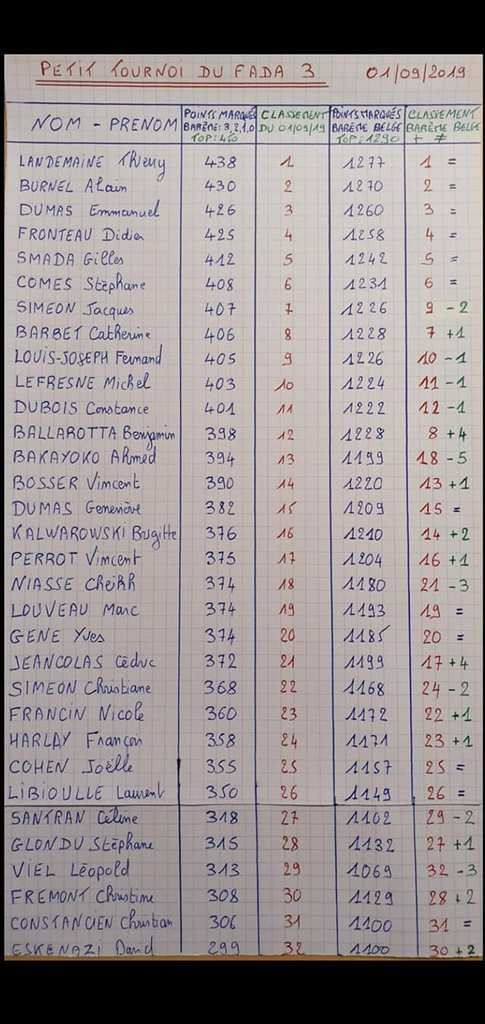 PETIT TOURNOI DU FADA 3 01/09/2019
NOM - PRENOM POINTS MARQUÉS BARÈME: 3,2,1,0 TOP: 450 CLASSEMENT DU 01/09/19 POINTS MARQUÉS BARÈME BELGE TOP: 1290 CLASSEMENT BARÈME BELGE + ≠
LANDEMAINE Thierry 438 1 1277 1 =
BURNEL Alain 430 2 1270 2 =
DUMAS Emmanuel 426 3 1260 3 =
FRONTEAU Didier 425 4 1258 4 =
SMADA Gilles 412 5 1242 5 =
COMES Stéphane 408 6 1231 6 =
SIMEON Jacques 407 7 1226 9 -2
BARBET Catherine 406 8 1228 7 +1
LOUIS-JOSEPH Fernand 405 9 1226 10 -1
LEFRESNE Michel 403 10 1224 11 -1
DUBOIS Constance 401 11 1222 12 -1
BALLAROTTA Benjamin 398 12 1228 8 +4
BAKAYOKO Ahmed 394 13 1199 18 -5
BOSSER Vincent 390 14 1220 13 +1
DUMAS Geneviève 382 15 1209 15 =
KALWAROWSKI Brigitte 376 16 1210 14 +2
PERROT Vincent 375 17 1204 16 +1
NIASSE Cheikh 374 18 1180 21 -3
LOUVEAU Marc 374 19 1193 19 =
GENE Yves 374 20 1185 20 =
JEANCOLAS Cédric 372 21 1199 17 +4
SIMEON Christiane 368 22 1168 24 -2
FRANCIN Nicole 360 23 1172 22 +1
HARLAY François 358 24 1171 23 +1
COHEN Joëlle 355 25 1157 25 =
LIBIOULLE Laurent 350 26 1149 26 =
SANTRAN Céline 318 27 1102 29 -2
GLONDU Stéphane 315 28 1132 27 +1
VIEL Léopold 313 29 1069 32 -3
FREMONT Christine 308 30 1129 28 +2
CONSTANCIEN Christian 306 31 1100 31 =
ESKENAZI David 299 32 1100 30 +2